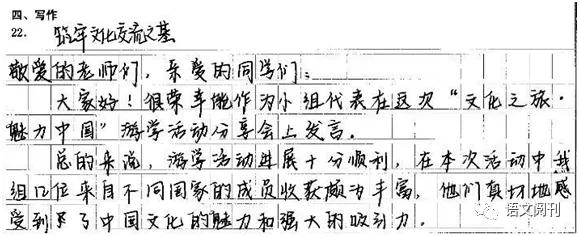 四、写作
22. 筑牢文化交流之基
敬爱的老师们，亲爱的同学们：
大家好！很荣幸能作为小组代表在这次“文化之旅·
魅力中国”游学活动分享会上发言。
总的来说，游学活动进展十分顺利，在本次活动中我
组几位来自不同国家的成员收获颇为丰富，他们真切地感
受到了中国文化的魅力和强大的吸引力。
语文阅刊